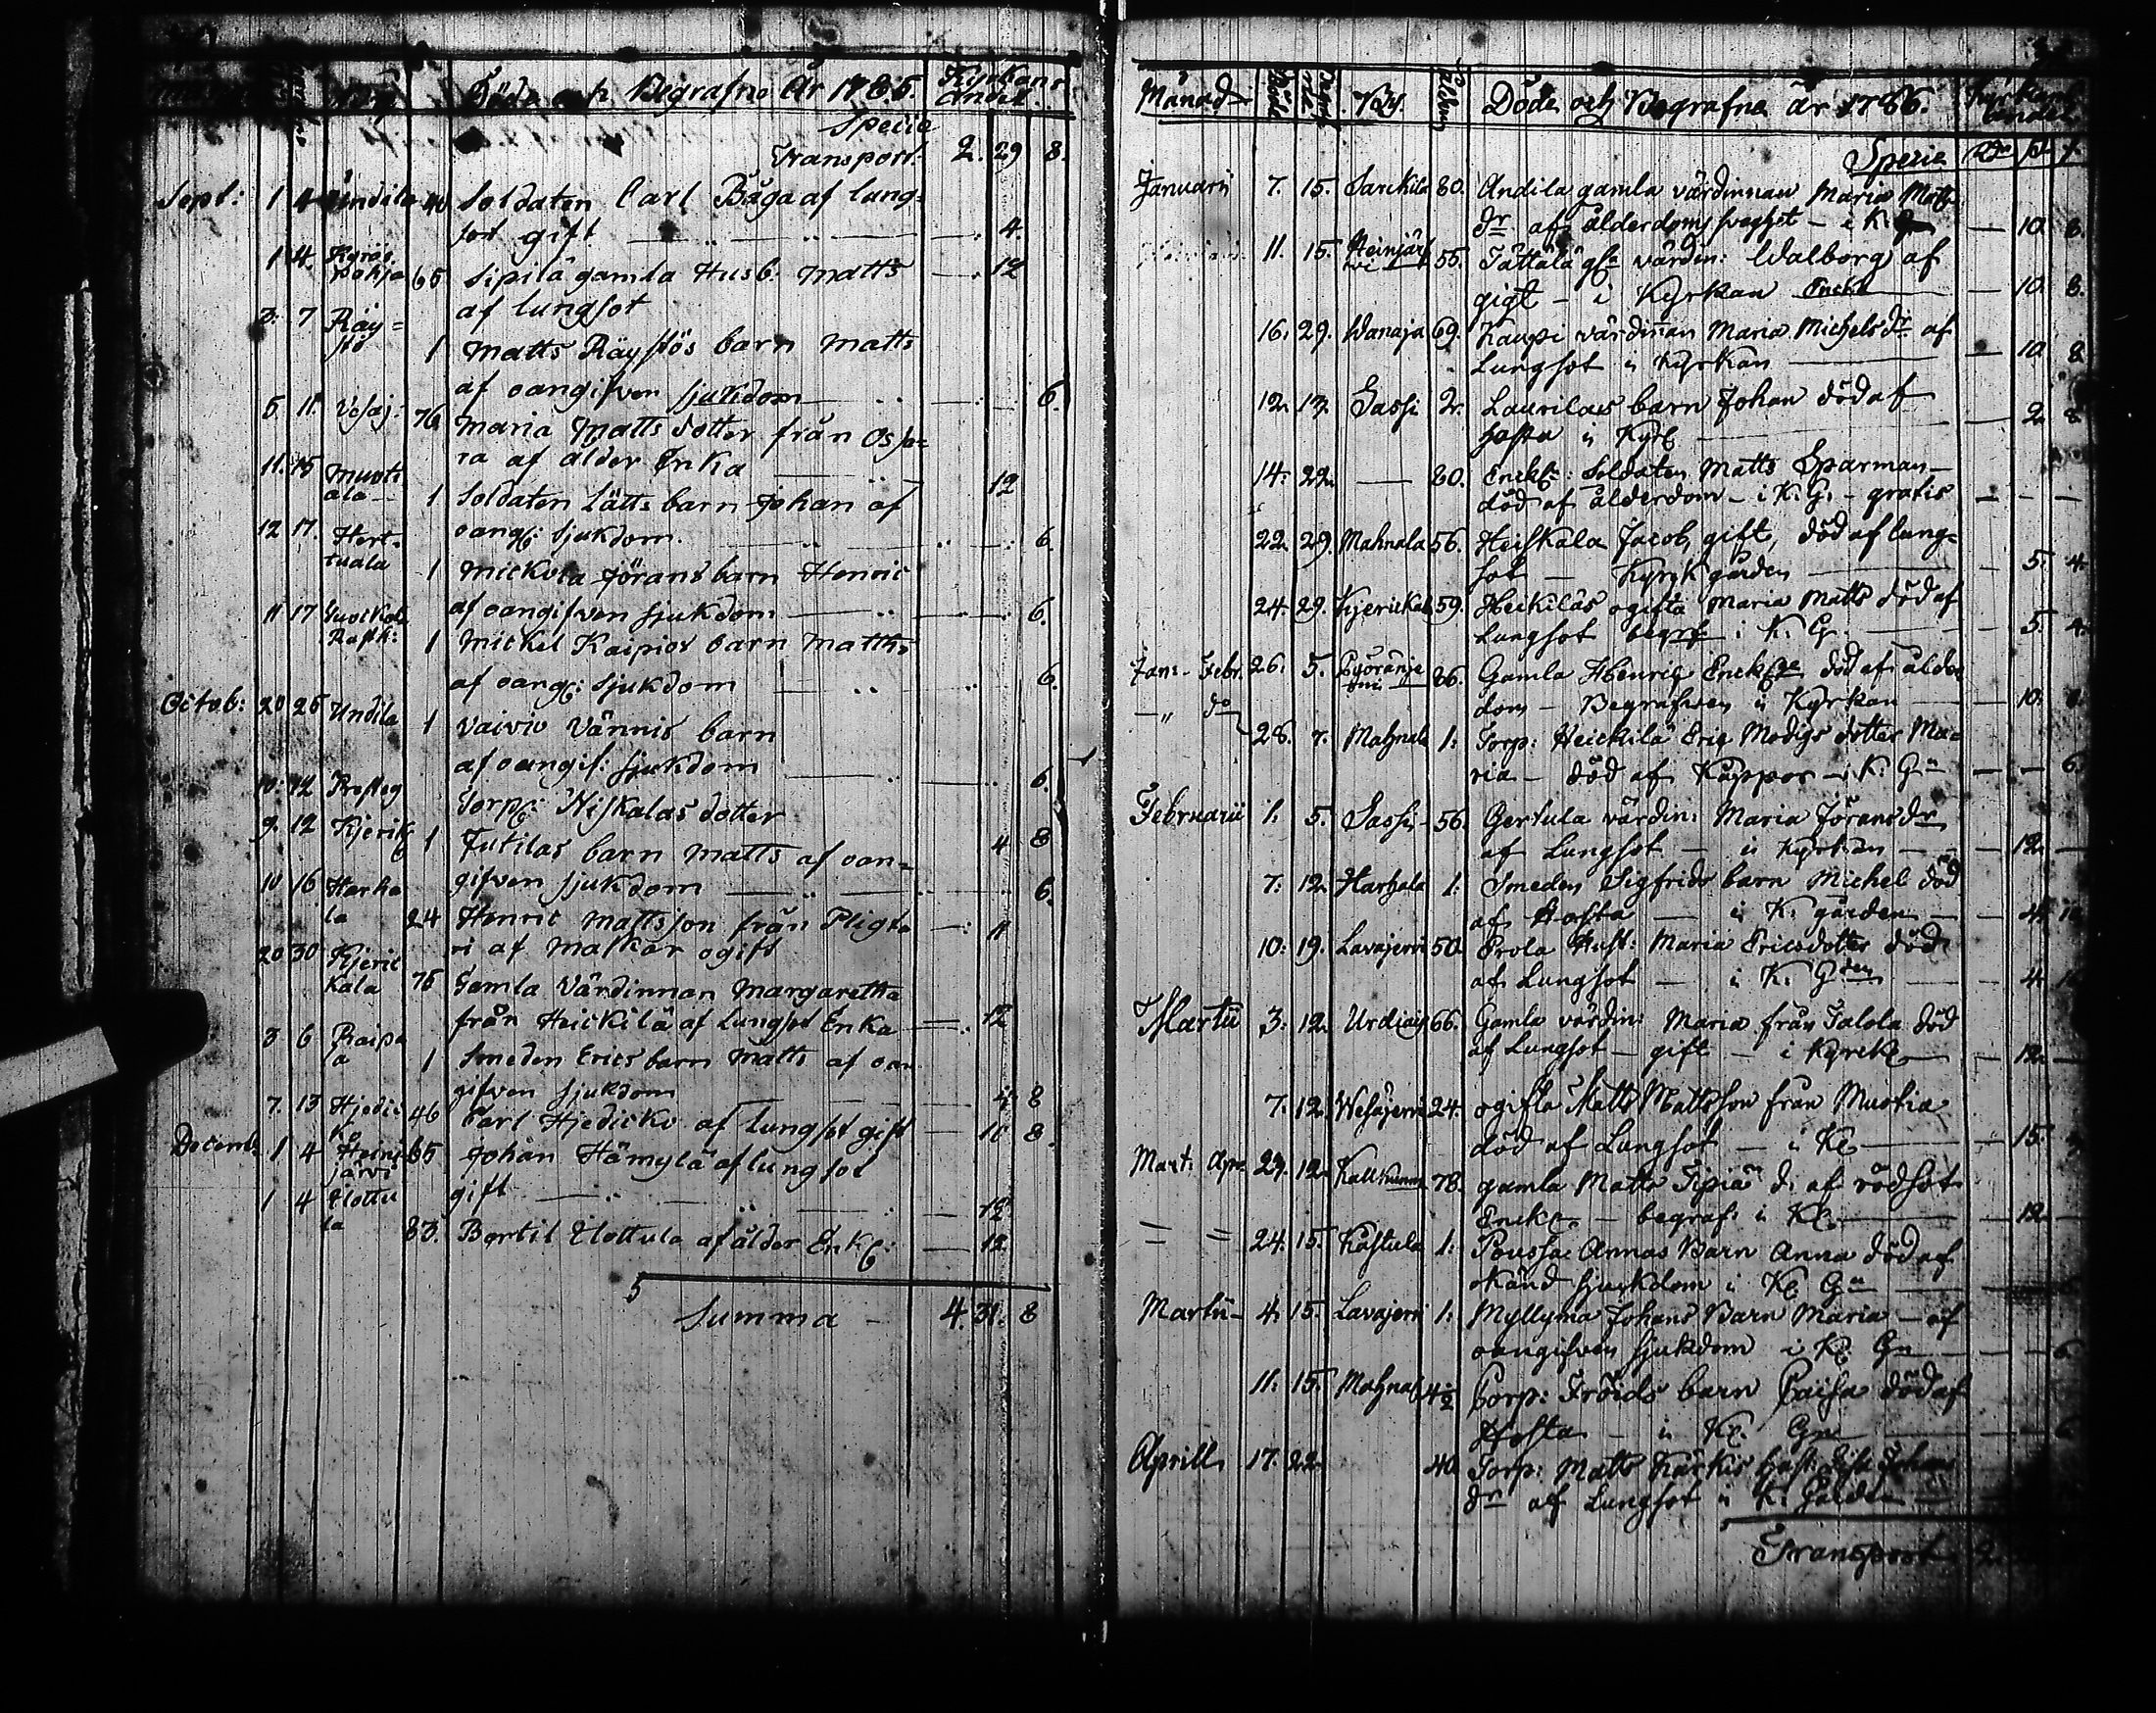 Döde och Begrafne År 1785. Kyrkans andel
Specie
Transport: 2. 29 8.
Sept: 1 4 Undila 40 Soldaten Carl Båga af lung-
sot gift 4.
1 4. Kyrös pohja 65 Sipilä gamla Husb. Matts 12
af lungsot
3. 7 Räy=
stö 1 Matts Räystös barn Matts
af oangifven sjukdom 6.
5 11 Vesaj: 76 Maria Matts dotter från Ossa=
ra af ålder Enka 12
11. 15 Muoti
ala 1 Soldaten Lätts barn Johan af
oangf: sjukdom 6.
12 17. Hert-
tuala 1 Mickola Jörans barn Henric
af oangifven sjukdom 6.
11 17 1 Mickel Kaipios barn Matths
af oangf: sjukdom 6.
Octob: 20 25 Undila 1 Vaivio Vännis barn
af oangif: sjukdom 6.
10. 12 Torp: Niskalas dotter
9. 12 Kjerik 1 Futilas barn Matts af oan= 4 8
gifven sjukdom 6.
10 16 Harha
la 24 Henric Mattsson från Pligta 11
ri af Maskar ogift
20 30 Kjeric
kala 75 Gamla Värdinnan Margaretha
från Heickilä af Lungsot Enka 12
3 6 Raipa
la 1 Smeden Erics barn Matts af oan
gifven sjukdom 4 8
7. 13 Hjedic 46 Carl Hjedicko af lungsot gift 11 8.
Decemb. 1 4 Heini
järvi 65 Johan Hämylä af lungsot
gift 12
1 4 Elottu
la 83. Bertil Elottula af ålder Enkl: 12
Summa 4. 31. 8
Månad Döde By Ålder Döde och Begrafna år 1786. Kyrkans andel
Specie Rd
Januarii 7. 15. Sarckila 80. Andila gamla värdinnan Maria Matts
dr. af ålderdoms svaghet - i K. 10. 8.
11. 15. Heinjär
vi 55. Tättälä gla värdin: Walborg af
gigt - i Kyrkan Encka 10. 8.
16. 29. Wanaja 69. Kaupi värdinnan Maria Michelsdr af
Lungsot i Kyrkan 10 8
12. 13. Sassi 2. Laurilas barn Johan död af
hosta i Kyrk 2. 8
14. 22. 80. Enckl: Soldaten Matts Sparman
död af ålderdom - i K. G. - gratis
22. 29. Mahnala 56. Heiskala Jacob, gift, död af lung=
sot - Kyrkgården 5. 4.
24. 29. Kjerickal 59. Heickiläs ogifta Maria Matts död af
Lungsot begrf i K. G. 5. 4.
Jan: - Febr. 26. 5. 86. Gamla Henric Enckl död af ålder
dom - Begrafven i Kyrkan 10.
do 28. 7. Mahnala 1: Torp: Heickilä Eric Modigs dotter Ma=
ria - död af Koppor - i K. Gn 6.
Februarii 1. 5. Sassi 56. Gertula värdin: Maria Jörans dr
af Lungsot - i Kyrkan 12.
7: 12. Harhala 1: Smeden Sigfrids barn Michel död
af Hosta - i K. gården 4.
10: 19. Lavajerwi 50. Erola Hust: Maria Ericsdotter död
af Lungsot - i K. Gden 4
Martii 3: 12. Urdiay 66. Gamla värdin: Maria från Talola död
af Lungsot - gift - i Kyrck 12.
7: 12. Wesajerwi 24. ogifta Matts Mattsson från Muotia
död af Lungsot - i K 15.
Mart: Apr. 29. 12. 78. gamla Matts Tipiä d. af rödsot
Enckl - begraf: i K 12.
24. 15. Kostula 1: Poussa Annas Barn Anna död af
okänd sjuckdom i K. Gn
Martii 4. 15. Lavajerwi 1: Myllyma Johans Barn Maria - af
oangifven sjukdom i K. Gn 6.
11. 15. Mahnal 4 1/2 Torp: Fröids barn Caisa död af
Hosta - i K. Gn 6
Aprill 17. 22. 40 Torp: Matts Kärkis hust:
dr af Lungsot i K. Gården
Transport 2.